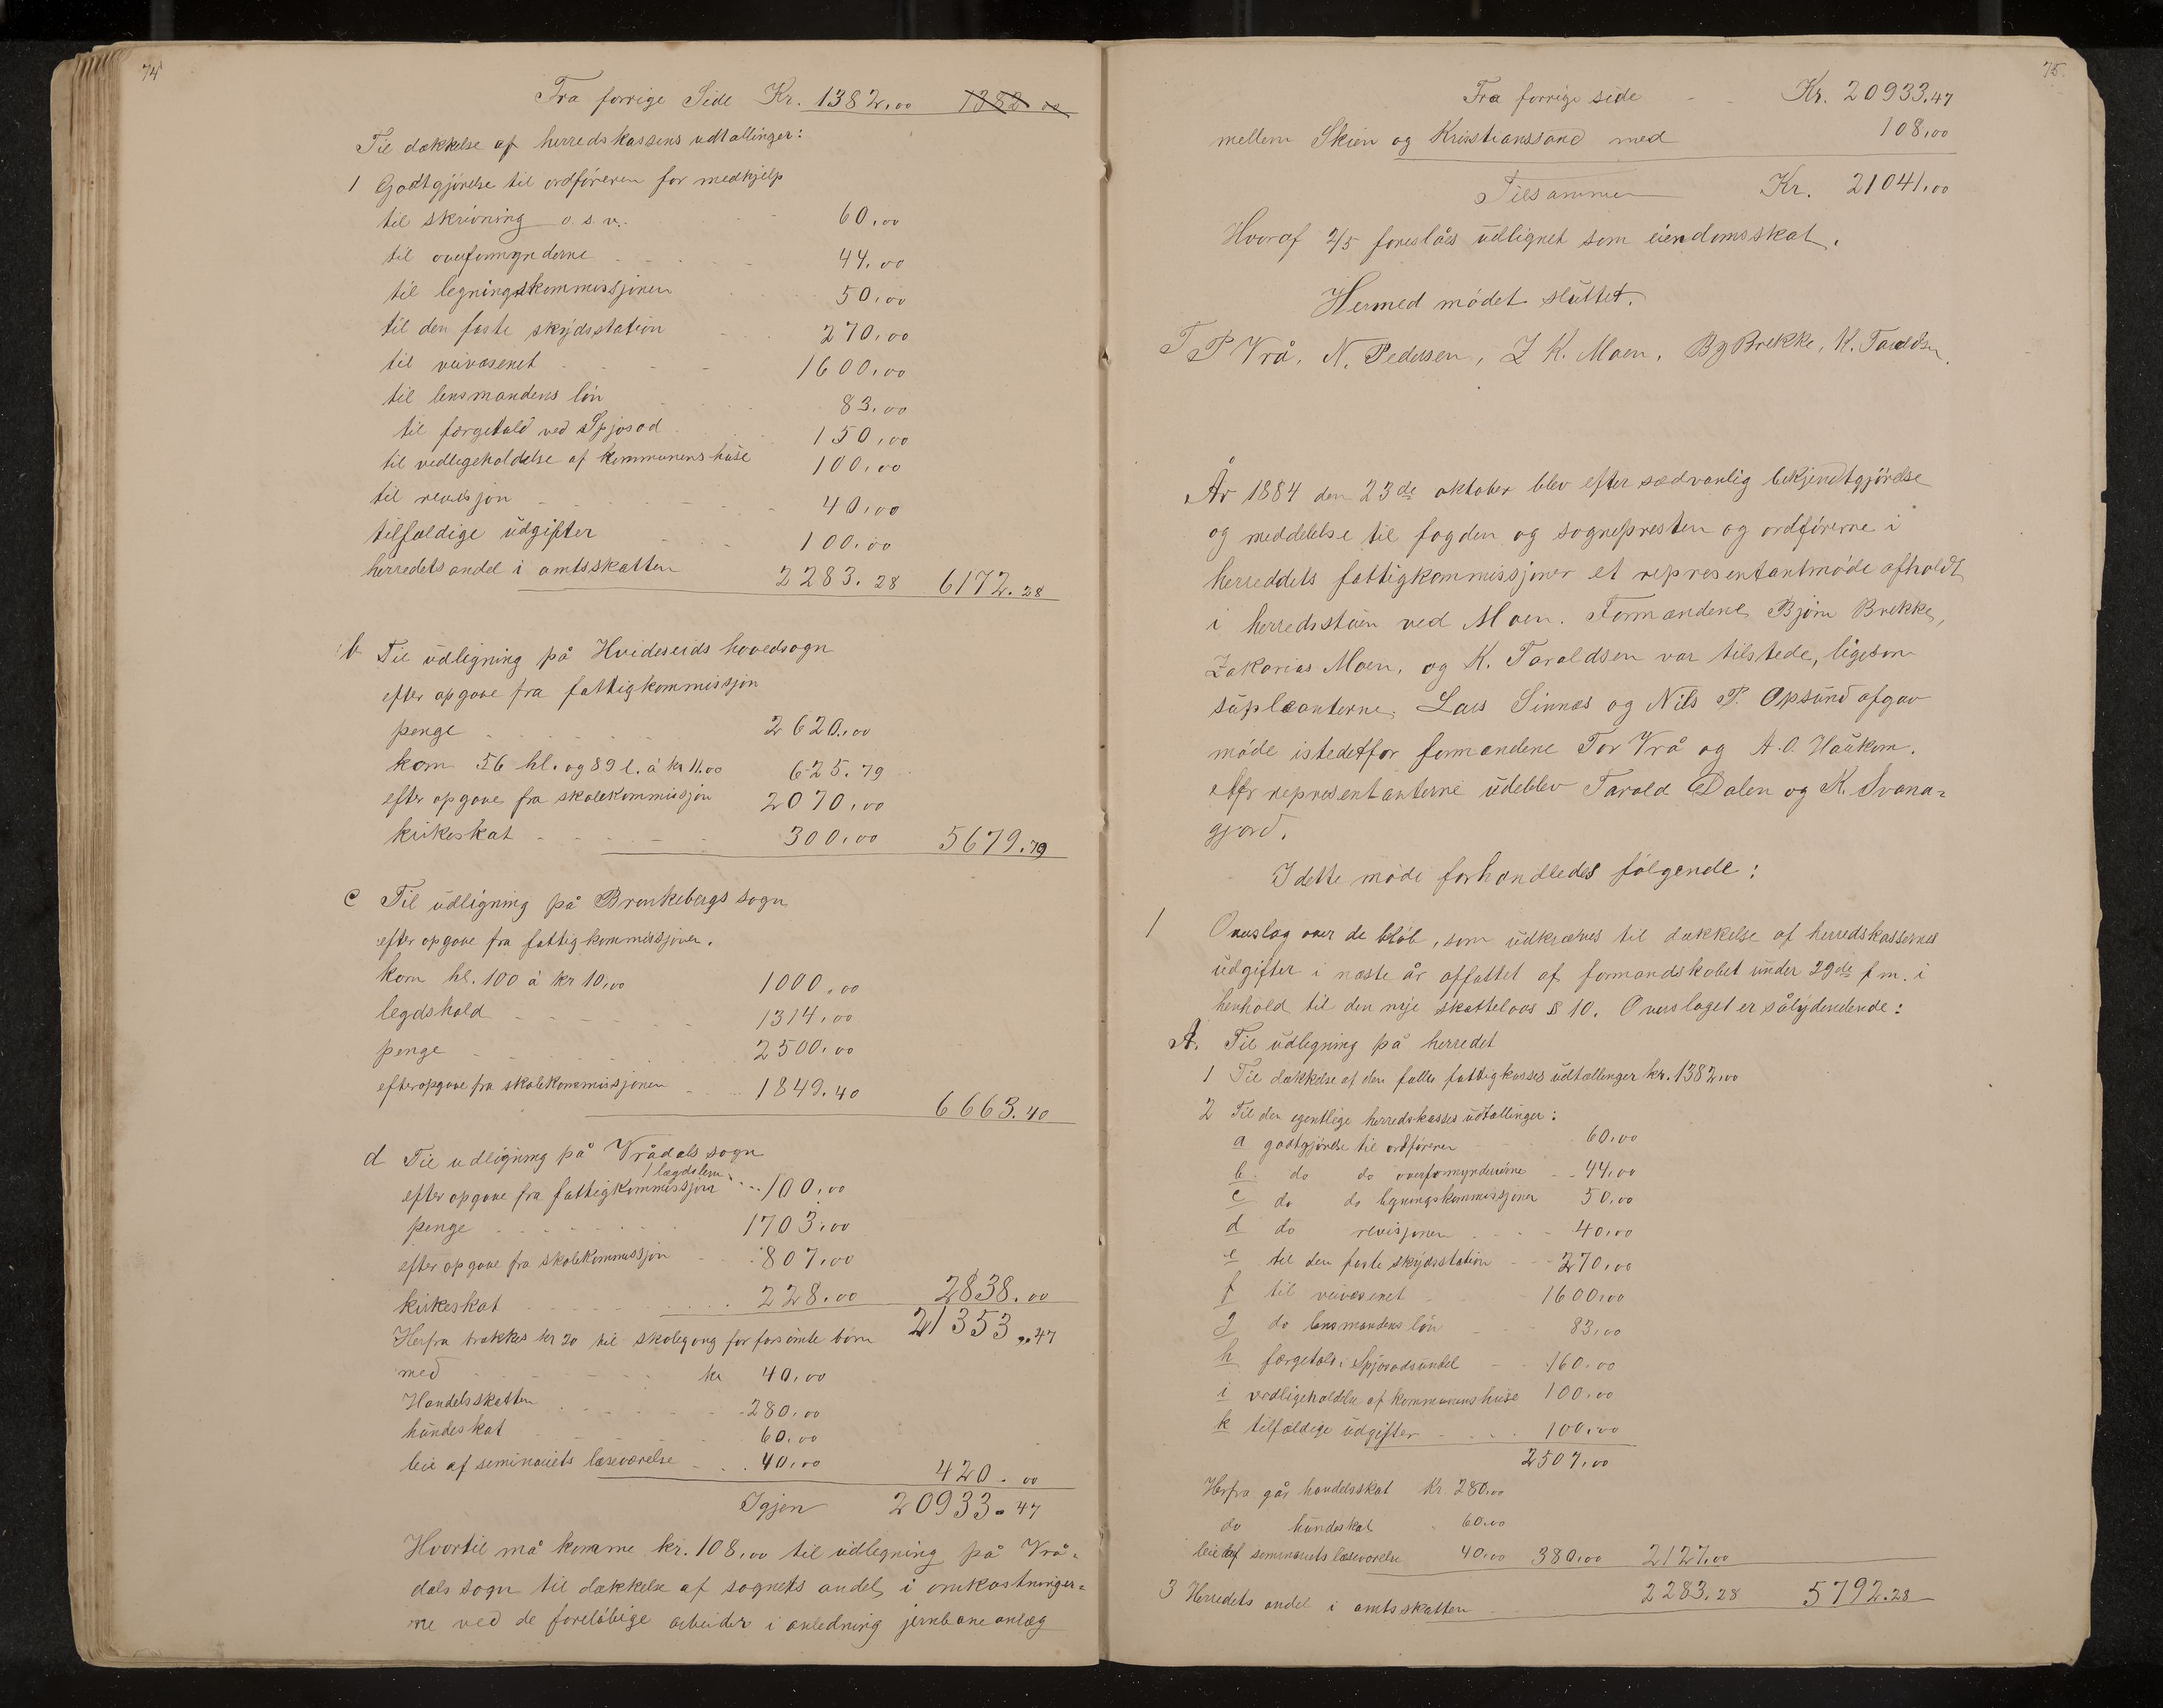 74
Fra forrige Side Kr. 1382,00 1382 00
Til dækkelse af herredskassens udtællinger:
1 Godtgjörelse til ordföreren for medhjelp
til skrivning o. s. v. 60,00
til overformynderne 44,00
til legningskommissjonen 50,00
til den faste skydsstation 270,00
til veivæsenet 1600,00
til lensmandens lön 83,00
til færgetold ved Spjosod 150,00
til vedligeholdelse af kommunens huse 100,00
til revisjon 40,00
tilfældige udgifter 100,00
herredets andel i amtsskatten 2283.28 6172.28
b Til udligning på Hvideseids hovedsogn
efter opgave fra fattigkommissjon
penge 2620,00
korn 56 hl. og 89 l. á kr 11.00 625.79
efter opgave fra skolekommissjon 2070,00
kirkeskat 300,00 5679.79
c Til udligning på Brunkebergs sogn
efter opgave fra fattigkommissjonen.
korn hl. 100 á kr 10,00 1000,00
legdshold 1314,00
penge 2500,00
efter opgave fra skolekommissjonen 1849.40
6663.40
d Til udligning på Vrådals sogn
1 lægdslem
efter opgave fra fattigkommissjon 100,00
penge 1703,00
efter opgave fra skolekommissjon 807,00
kirkeskat 228.00 2838.00
Herfra trækkes kr 20 til skolegang for forsömte börn 21353.47
med kr 40,00
Handelsskatten 280,00
hundeskat 60,00
leie af seminariets læseværelse 40,00 420.00
Igjen 20933.47
Hvortil må komme kr. 108,00 til udlegning på Vrå-
dals sogn til dækkelse af sognets andel i omkostninger-
ne ved de forelöbige arbeider i anledning jernbaneanlæg
75.
Fra forrige side Kr. 20933.47
mellem Skien og Kristianssand med 108,00
Tilsammen Kr. 21041,00
Hvoraf 2/5 foreslåes udlignet som eiendomsskat.
Hermed mödet sluttet.
T P Vrå, N. Pedersen, Z K. Moen, Bj Brekke, K. Taraldsen
År 1884 den 23de oktober blev efter sædvanlig bekjendtgjörelse
og meddelelse til fogden og sognepresten og ordförerne i
herreddets fattigkommissjoner et representantmöde afholdt
i herredsstuen ved Moen. Formændene Björn Brekke,
Zakarias Moen, og K. Taraldsen var tilstede, ligesom
suppleanterne Lars Sinnes og Nils P. Opsund afgav
möde istedetfor formændene Tor Vrå og A. O. Haukom.
Af representanterne udeblev Tarald Dalen og K. Svana-
gjord.
I dette möde forhandledes fölgende:
1 Overslag over de belöb, som udkræves til dækkelse af herredskassernes
udgifter i næste år affattet af formandskabet under 29de f. m. i
henhold til den nye skattelovs § 10. Overslaget er sålydendende:
A. Til udligning på herredet
1 Til dækkelse af den fælles fattigkasses udtællinger kr. 1382,00
2 Til den egentlige herredskasses udtællinger:
a godtgjörelse til ordföreren 60,00
b do do overformynderierne 44,00
c do do legningskommissjoner 50,00
d do revisjonen 40,00
e til den faste skydsstation 270,00
f til veivæsenet 1600,00
g do lensmandens lön 83,00
h færgetold i Spjosodsundet 160,00
i vedligeholdelse af kommunens huse 100,00
k tilfældige udgifter 100,00
2507,00
Herfra går handelsskat Kr. 280,00
do hundeskat 60,00
leie af seminariets læseværelse 40,00 380,00 2127,00
3 Herredets andel i amtsskatten 2283.28 5792.28